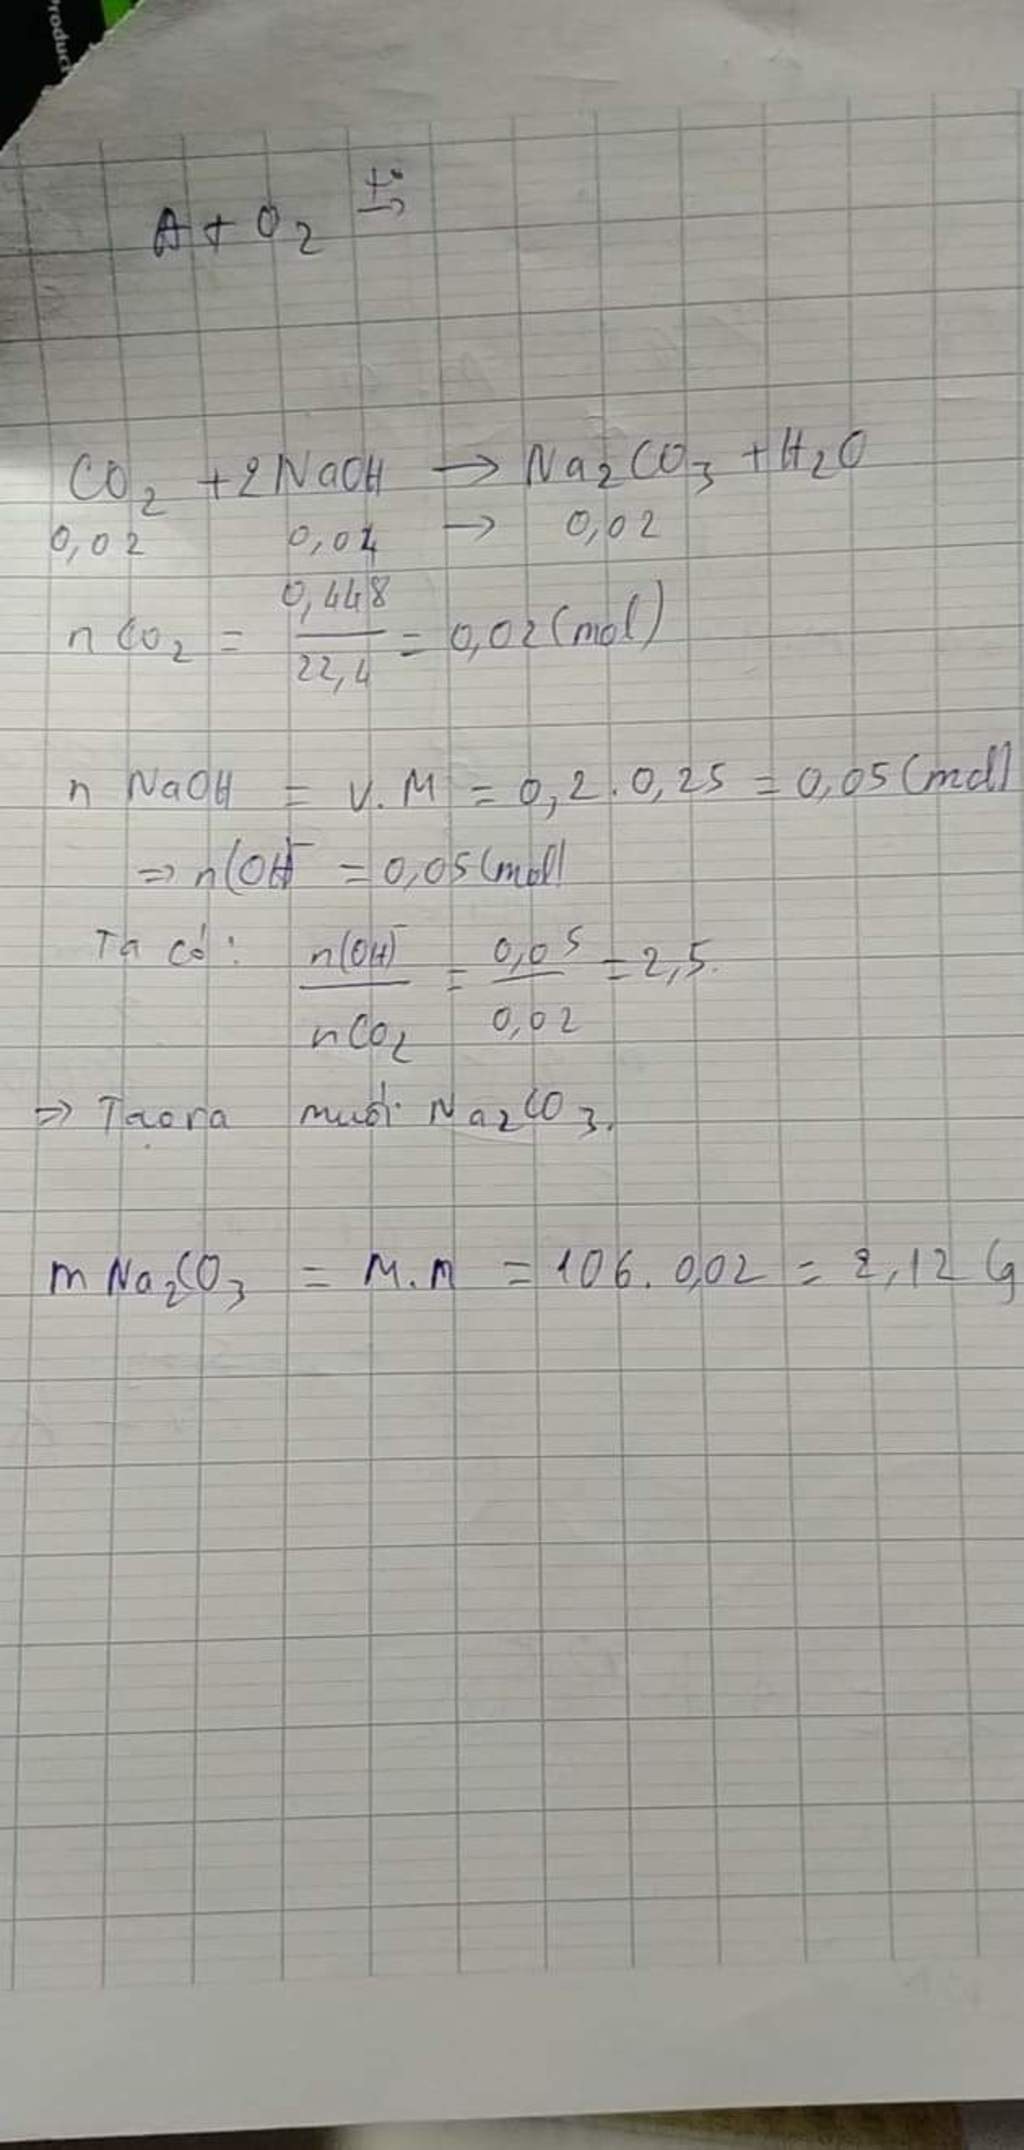 Product
A + O2 t° →
CO2 + 2NaOH → Na2CO3 + H2O
0,02 0,04 → 0,02
nCO2 = 0,448 / 22,4 = 0,02 (mol)
n NaOH = V.M = 0,2 . 0,25 = 0,05 (mol)
=> n(OH)⁻ = 0,05 (mol)
Ta có: n(OH)⁻ / nCO2 = 0,05 / 0,02 = 2,5.
=> Tạo ra muối Na2CO3.
m Na2CO3 = M.n = 106 . 0,02 = 2,12 (g